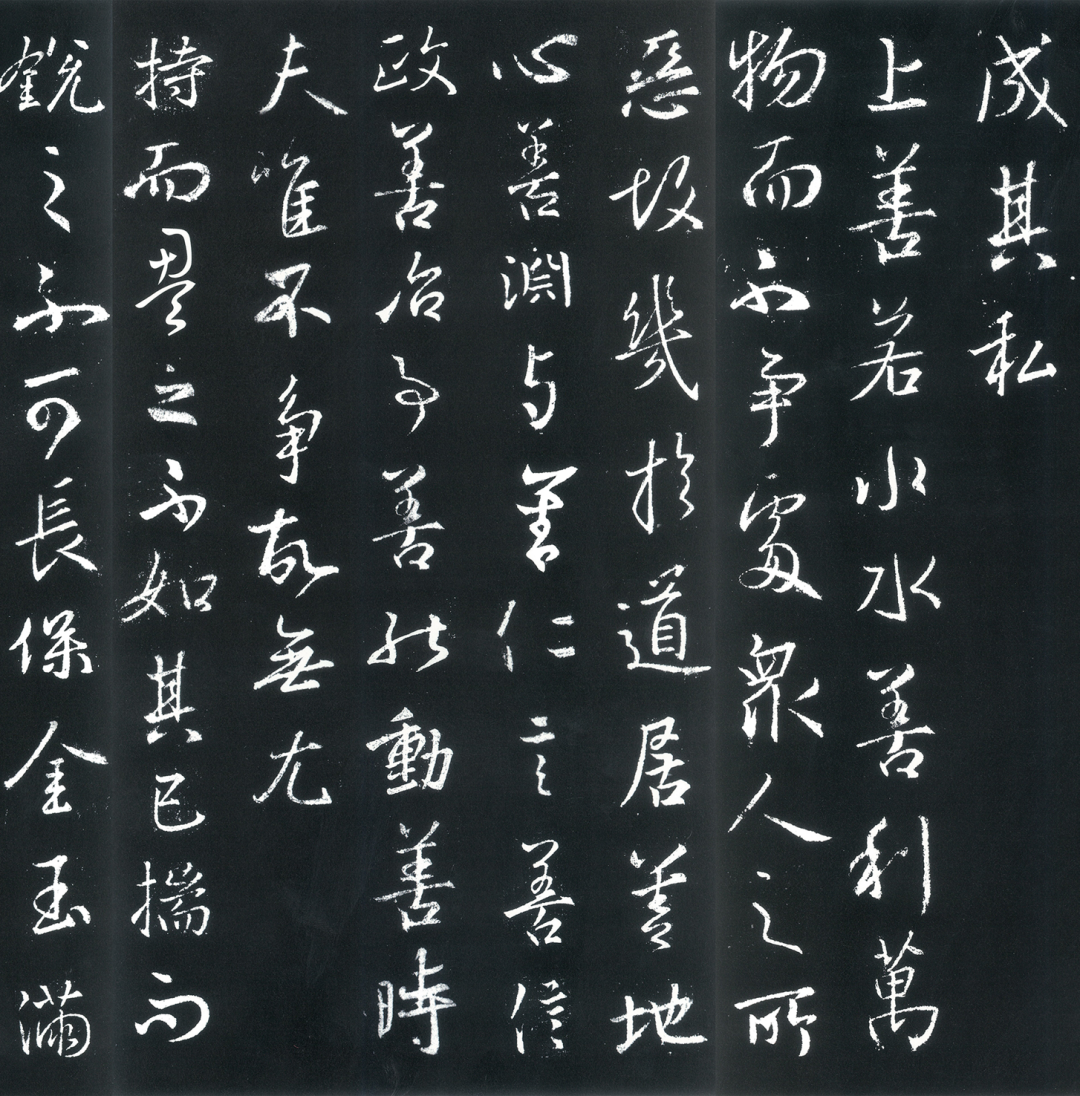 成其私
上善若水水善利萬
物而不争處衆人之所
惡故幾於道居善地
心善淵与善仁言善信
政善治事善能動善時
夫唯不争故無尤
持而盈之不如其已揣而
銳之不可長保金玉滿